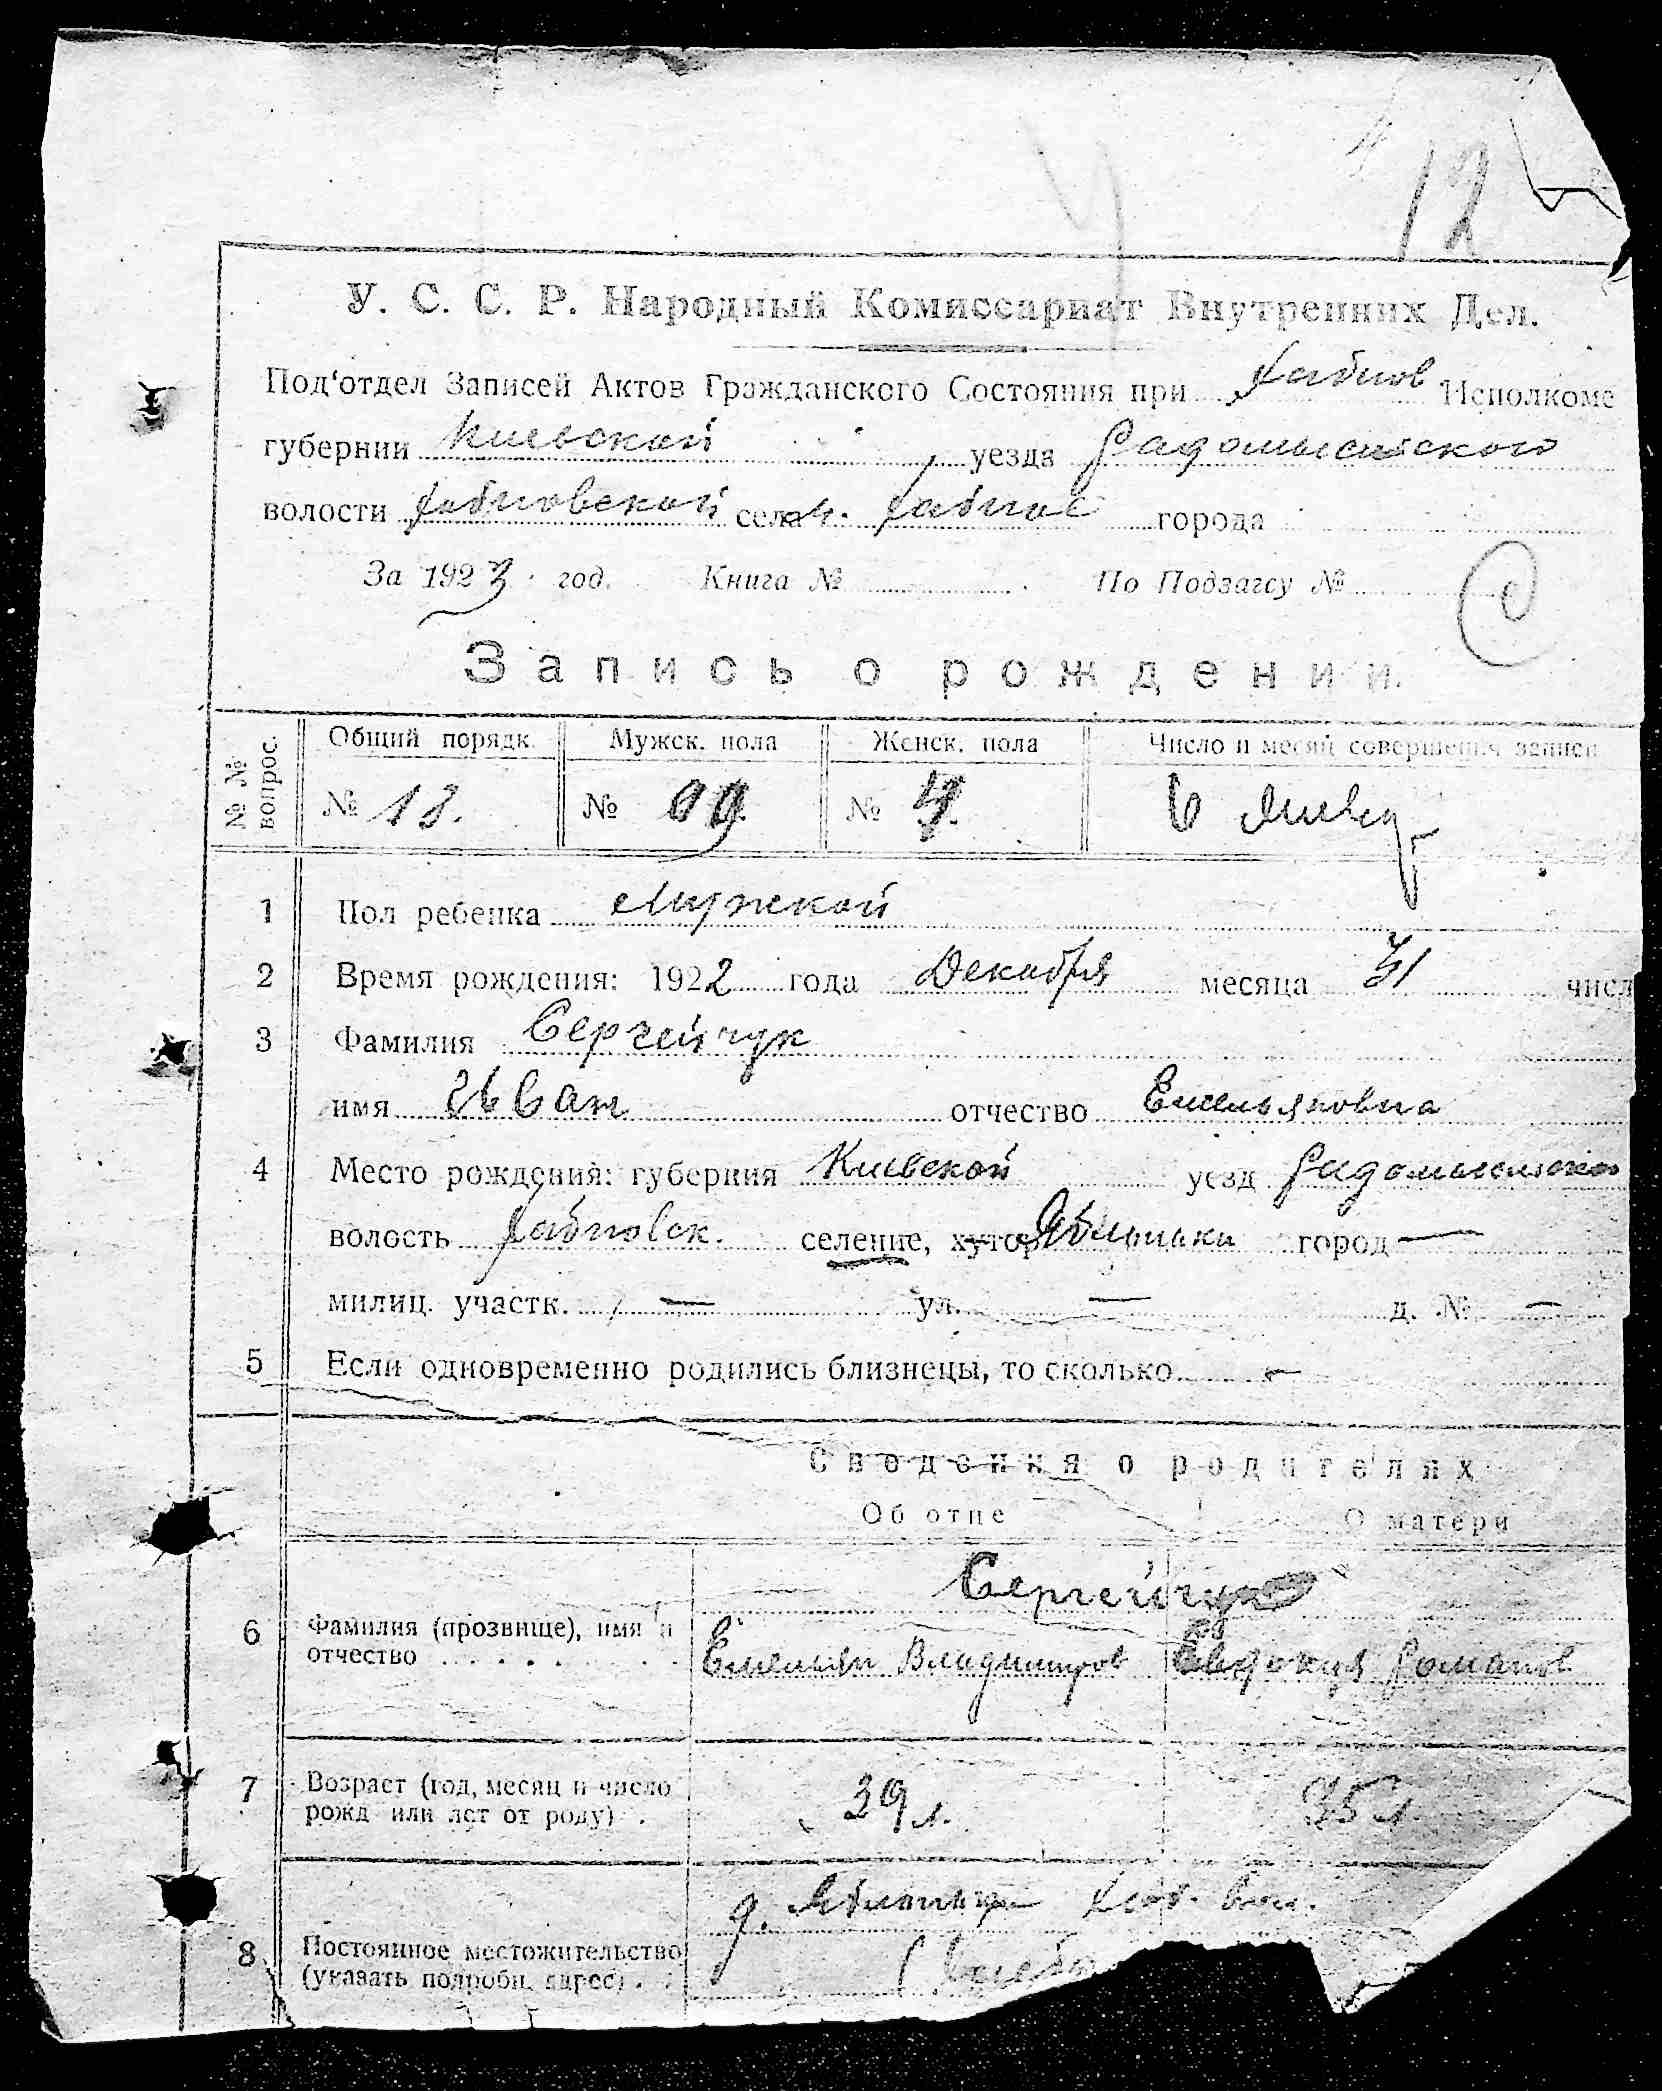 12
У. С. С. Р. Народный Комиссариат Внутренних Дел.
Под'отдел Записей Актов Гражданского Состояния при Хабнов Исполкоме
губернии Киевской уезда Радомысльского
волости Хабновской села м. Хабное города
За 1923 год. Книга № По Подзагсу №
Запись о рождении.
№ № вопрос. Общий порядк. Мужск. пола Женск. пола Число и месяц совершения записи
№ 13. № 09. № 6 Января
1 Пол ребенка Мужской
2 Время рождения: 1922 года Декабря месяца 31 числ
3 Фамилия Сергейчук
имя Иван отчество Емельяновна
4 Место рождения: губерния Киевской уезд Радомысльском
волость Хабновск. селение, хутор Яблонька город —
милиц. участк. — ул. — д. № —
5 Если одновременно родились близнецы, то сколько —
Сведения о родителях
Об отце О матери
Сергейчук
6 Фамилия (прозвище), имя и отчество . . . . . . Емельян Владимиров Евдокия Романов
7 Возраст (год, месяц и число рожд или лет от роду) . 39 л. 35 л.
д. Яблонька Хаб. вол.
8 Постоянное местожительство (указать подробн. адрес) . .